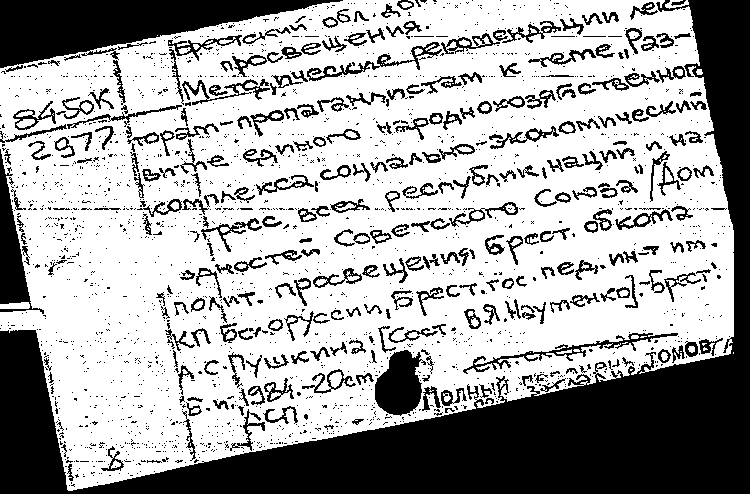 Брестский обл. дом
просвещения.
Методические рекомендации лек-
84-50К
торам-пропагандистам к теме „Раз-
2977
витие единого народнохозяйственного
комплекса, социально-экономический
гресс всех республик, наций и на-
одностей Советского Союза"/Дом
полит. просвещения Брест. обкома
КП Белоруссии, Брест. гос. пед. ин-т им.
А.С. Пушкина; [Сост. В.Я. Науменко].-Брест:
Б.и., 1984.-20см
см. след. кар.
ДСП.
Полный перечень томов
8